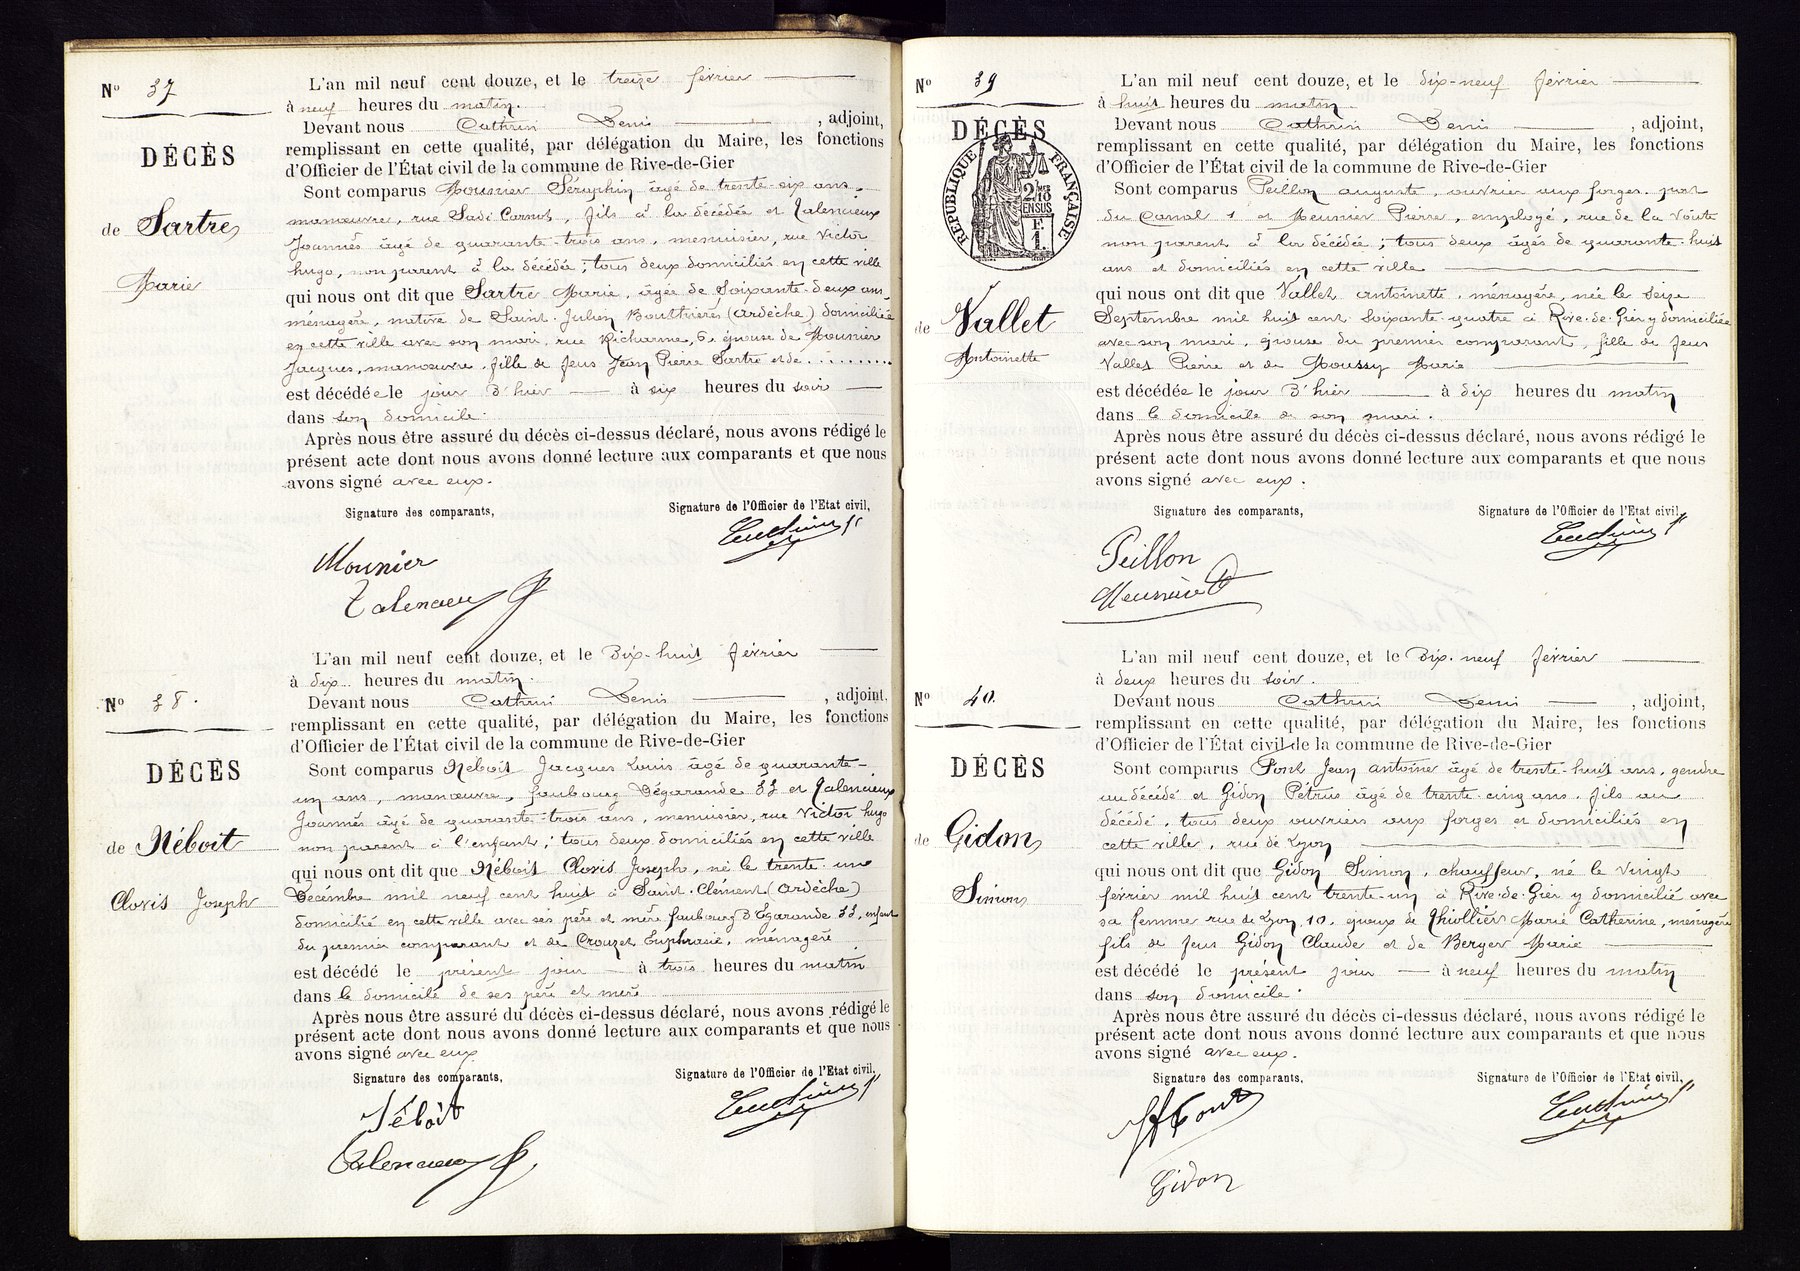 N° 37
DÉCÈS
de Sartre
Marie
L'an mil neuf cent douze, et le treize février
à neuf heures du matin.
Devant nous Cathrin Denis, adjoint,
remplissant en cette qualité, par délégation du Maire, les fonctions
d'Officier de l'État civil de la commune de Rive-de-Gier
Sont comparus Mounier Séraphin âgé de trente-six ans
manœuvre, rue Sadi Carnot, fils à la décédée et Valencieux
Joannès âgé de quarante-trois ans, menuisier, rue Victor
hugo, non parent à la décédée ; tous deux domiciliés en cette ville
qui nous ont dit que Sartre Marie, âgée de Soixante-deux ans,
ménagère, native de Saint-Julien Boutières (Ardèche) domiciliée
en cette ville avec son mari, rue Richarme, 6, épouse de Mounier
Jacques, manœuvre, fille de feus Jean Pierre Sartre et de ..........
est décédée le jour d'hier à six heures du soir
dans son domicile.
Après nous être assuré du décès ci-dessus déclaré, nous avons rédigé le
présent acte dont nous avons donné lecture aux comparants et que nous
avons signé avec eux.
Signature des comparants,
Signature de l'Officier de l'Etat civil,
Mounier
Valencieux
N° 38.
DÉCÈS
de Néboit
Clovis Joseph
L'an mil neuf cent douze, et le Dix-huit février
à dix heures du matin.
Devant nous Cathrin Denis, adjoint,
remplissant en cette qualité, par délégation du Maire, les fonctions
d'Officier de l'État civil de la commune de Rive-de-Gier
Sont comparus Néboit Jacques Louis âgé de quarante-
un ans, manœuvre, faubourg Dégarande 33 et Valencieux
Joannès âgé de quarante-trois ans, menuisier, rue Victor hugo
non parent à l'enfant ; tous deux domiciliés en cette ville
qui nous ont dit que Néboit Clovis Joseph, né le trente-une
Décembre mil neuf cent huit à Saint-Clément (Ardèche)
domicilié en cette ville avec ses père et mère faubourg d'Egarande 33, enfant
du premier comparant et de Crouzet Euphrasie, ménagère
est décédé le présent jour à trois heures du matin
dans le domicile de ses père et mère
Après nous être assuré du décès ci-dessus déclaré, nous avons rédigé le
présent acte dont nous avons donné lecture aux comparants et que nous
avons signé avec eux
Signature des comparants,
Signature de l'Officier de l'Etat civil,
Néboit
Valencieux
N° 39
DÉCÈS
RÉPUBLIQUE FRANÇAISE
2/10
EN SUS
F.
1.
de Vallet
Antoinette
L'an mil neuf cent douze, et le dix-neuf février
à huit heures du matin.
Devant nous Cathrin Denis, adjoint,
remplissant en cette qualité, par délégation du Maire, les fonctions
d'Officier de l'État civil de la commune de Rive-de-Gier
Sont comparus Peillon auguste, ouvrier aux forges, port
du Canal 1 et Meunier Pierre, employé, rue de la Voûte
non parent à la décédée ; tous deux âgés de quarante-huit
ans et domiciliés en cette ville
qui nous ont dit que Vallet antoinette, ménagère, née le Seize
Septembre mil huit cent Soixante-quatre à Rive-de-Gier y domiciliée
avec son mari, épouse du premier comparant, fille de feus
Vallet Pierre et de Moussy Marie
est décédée le jour d'hier à dix heures du matin
dans le domicile de son mari.
Après nous être assuré du décès ci-dessus déclaré, nous avons rédigé le
présent acte dont nous avons donné lecture aux comparants et que nous
avons signé avec eux.
Signature des comparants,
Signature de l'Officier de l'Etat civil,
Peillon
Meunier P
N° 40.
DÉCÈS
de Gidon
Simon
L'an mil neuf cent douze, et le Dix-neuf février
à deux heures du soir.
Devant nous Cathrin Denis, adjoint,
remplissant en cette qualité, par délégation du Maire, les fonctions
d'Officier de l'État civil de la commune de Rive-de-Gier
Sont comparus Font Jean Antoine âgé de trente-huit ans, gendre
au décédé et Gidon Pétrus âgé de trente-cinq ans, fils au
décédé, tous deux ouvriers aux forges et domiciliés en
cette ville, rue de Lyon
qui nous ont dit que Gidon Simon, chauffeur, né le Vingt
février mil huit cent trente-un à Rive-de-Gier y domicilié avec
sa femme rue de Lyon 10, époux de Thiollier Marie Catherine, ménagère
fils de feus Gidon Claude et de Berger Marie
est décédé le présent jour à neuf heures du matin
dans son domicile.
Après nous être assuré du décès ci-dessus déclaré, nous avons rédigé le
présent acte dont nous avons donné lecture aux comparants et que nous
avons signé avec eux.
Signature des comparants,
Signature de l'Officier de l'Etat civil,
Font
Gidon